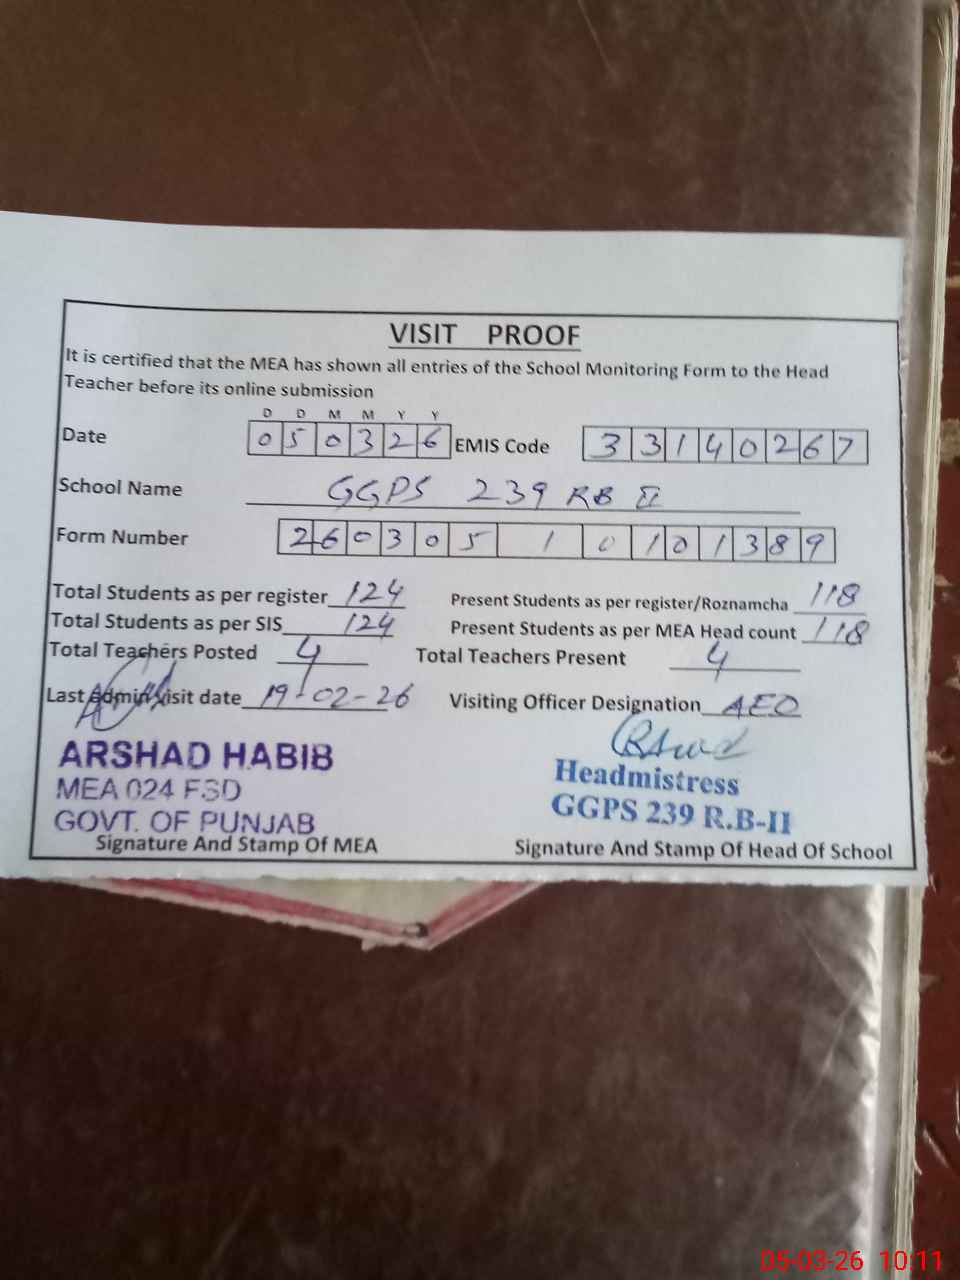 VISIT PROOF
It is certified that the MEA has shown all entries of the School Monitoring Form to the Head
Teacher before its online submission
D D M M Y Y
Date 050326 EMIS Code 33140267
School Name GGPS 239 RB II
Form Number 2603051010101389
Total Students as per register 124 Present Students as per register/Roznamcha 118
Total Students as per SIS 124 Present Students as per MEA Head count 118
Total Teachers Posted 4 Total Teachers Present 4
Last admin visit date 19-02-26 Visiting Officer Designation AEO
ARSHAD HABIB
MEA 024 FSD
GOVT. OF PUNJAB
Signature And Stamp Of MEA
Headmistress
GGPS 239 R.B-II
Signature And Stamp Of Head Of School
05-03-26 10:11